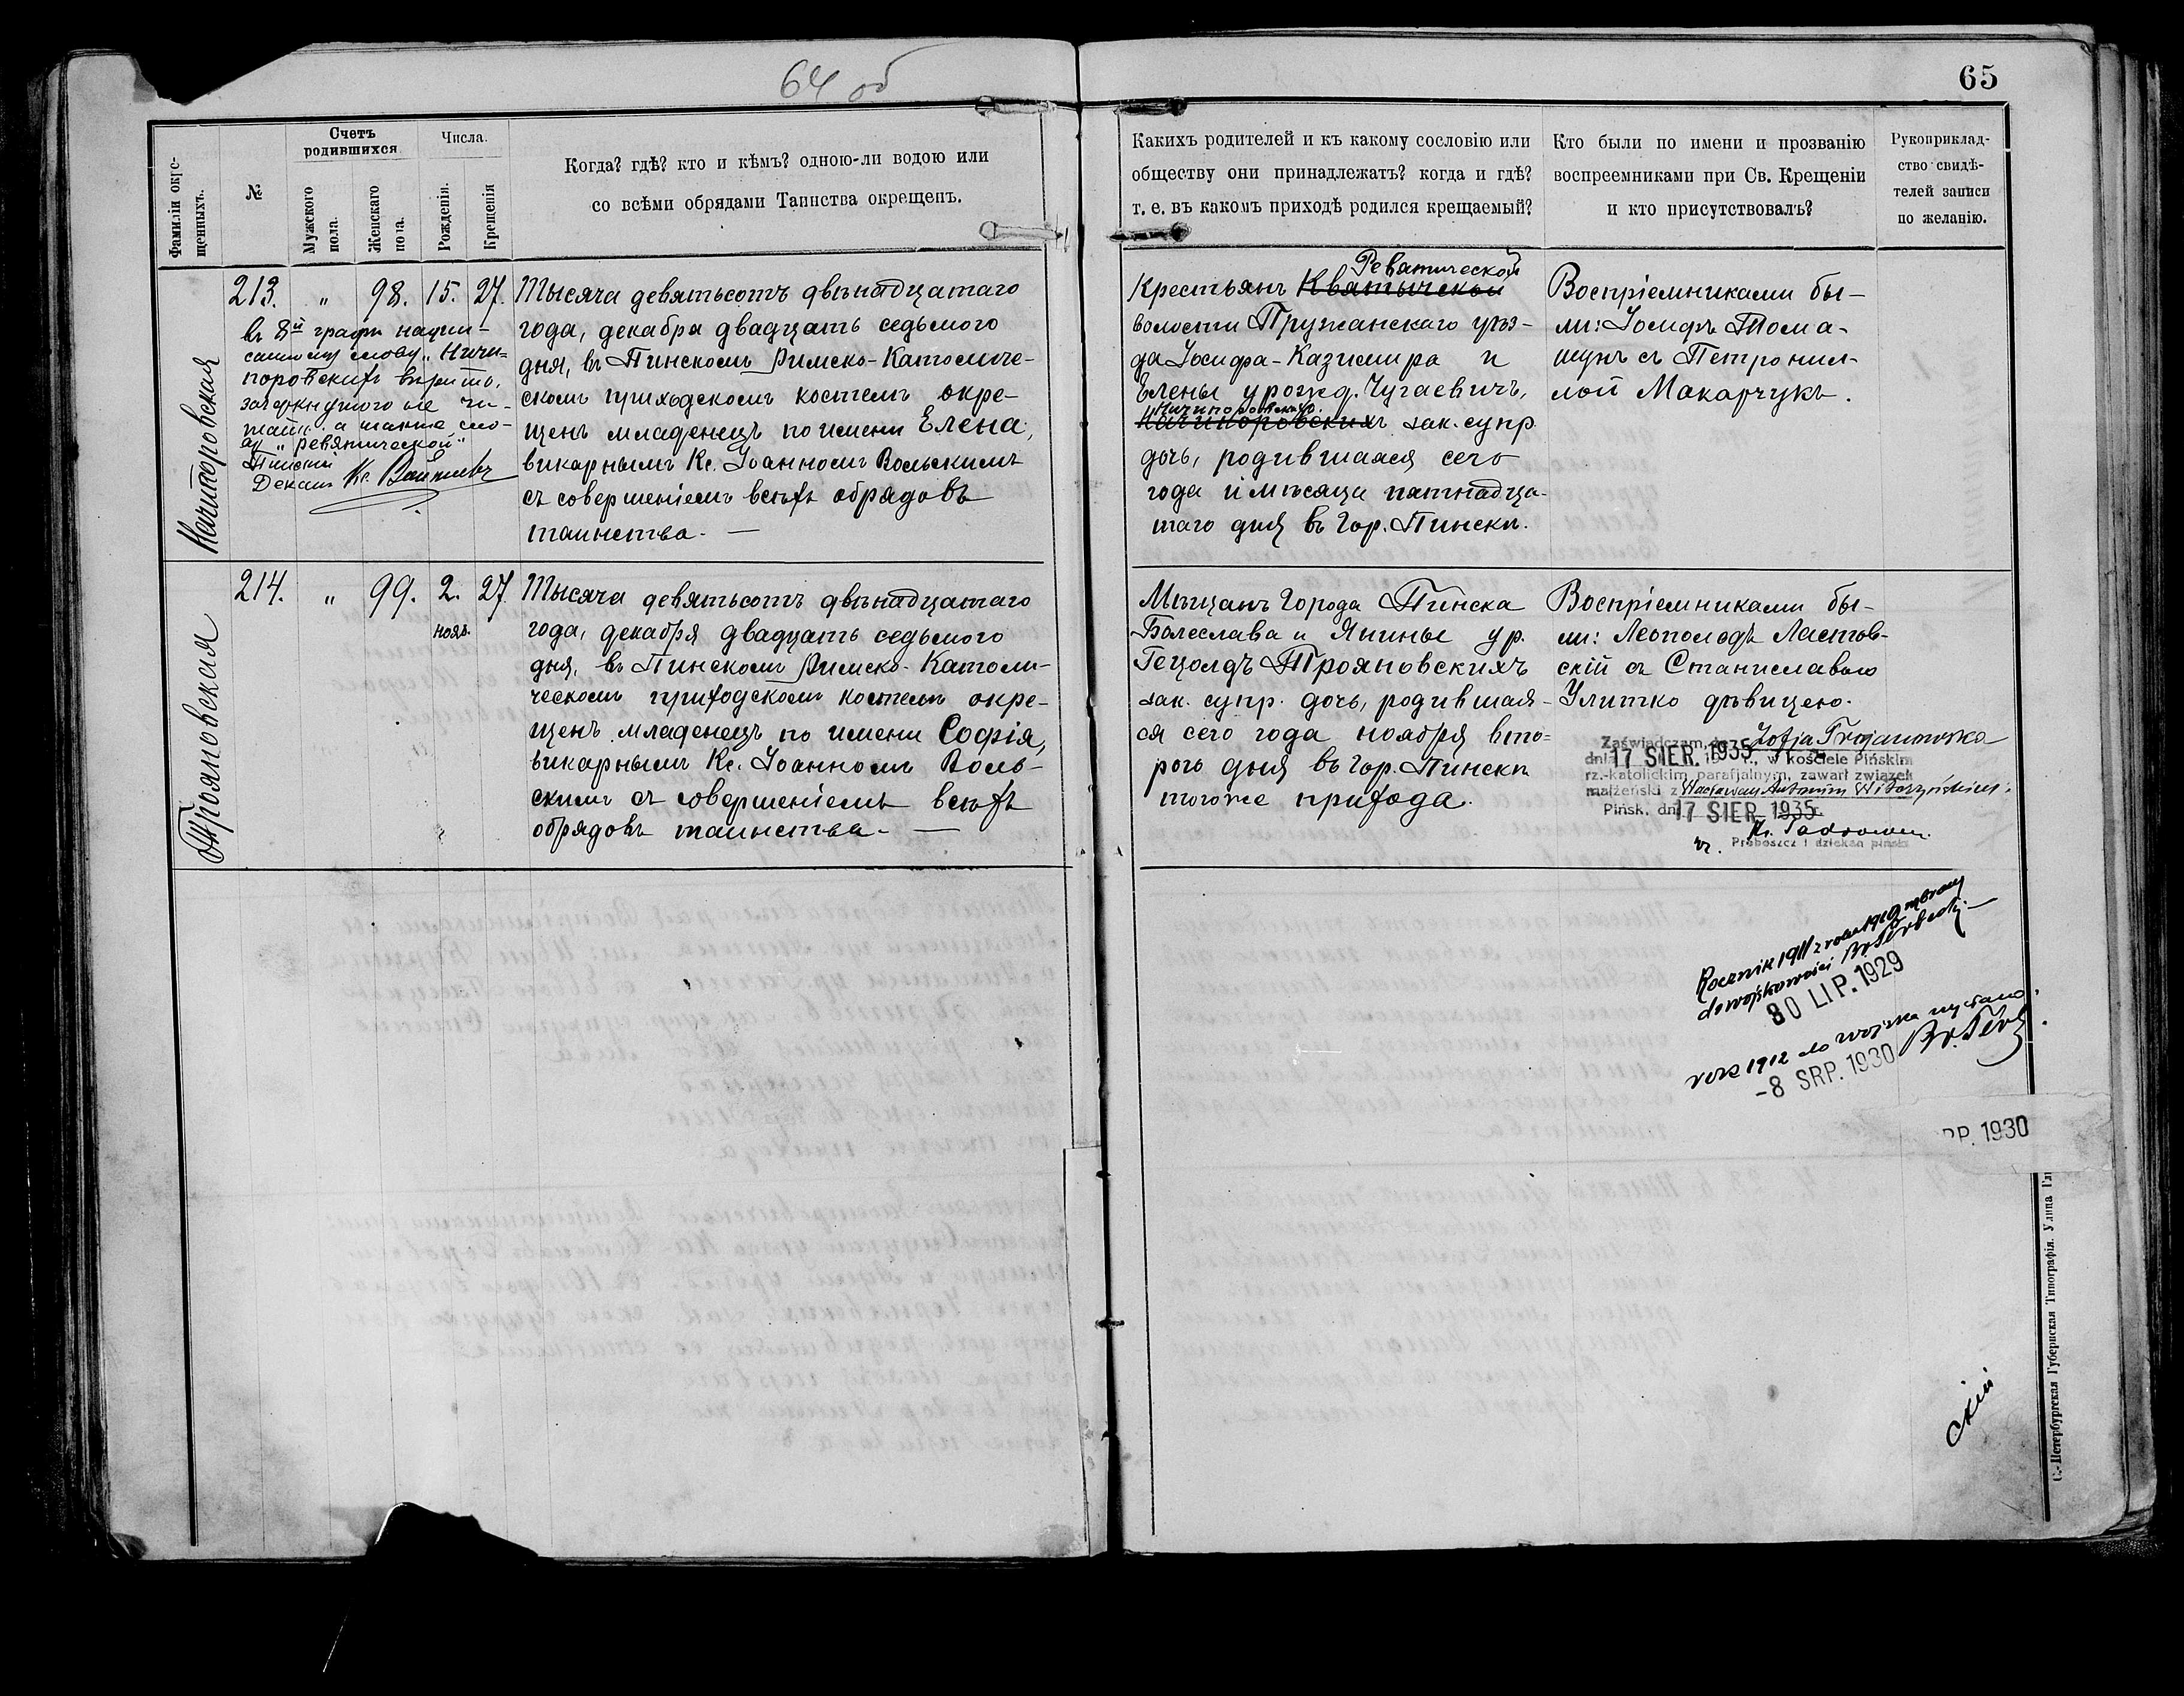 64 об
65
Фамиліи окре-
щенныхъ.
№
Счетъ
родившихся
Мужского
пола.
Женскаго
пола.
Числа.
Рожденія.
Крещенія
Когда? гдѣ? кто и кѣмъ? одною-ли водою или
со всѣми обрядами Таинства окрещенъ.
Какихъ родителей и къ какому сословію или
обществу они принадлежатъ? когда и гдѣ?
т. е. въ какомъ приходѣ родился крещаемый?
Кто были по имени и прозванію
воспреемниками при Св. Крещеніи
и кто присутствовалъ?
Рукоприклад-
ство свидѣ-
телей записи
по желанію.
213. " 98. 15. 27.
въ 8й графѣ надпи-
санному слову "Ничи-
поровскихъ вѣрить,
зачеркнутого не чи-
тать, а также сло-
ву "ревятической"
Пинскій
Деканъ Кс.
Тысяча девятьсотъ двѣнадцатаго
года, декабря двадцать седьмого
дня, въ Пинскомъ Римско-Католиче-
скомъ приходскомъ костелѣ окре-
щенъ младенецъ по имени Елена,
викарнымъ Кс. Іоанномъ Вольскимъ
съ совершеніемъ всѣхъ обрядовъ
таинства. —
Ревятической
Крестьянъ Квятычской
волости Пружанскаго уѣз-
да Іосифа-Казимира и
Елены урожд. Чугаевичъ,
Ничипоровскихъ
Начипоровскихъ зак. супр.
дочь, родившаяся сего
года и мѣсяца пятнадца-
таго дня въ гор. Пинскѣ.
Воспріемниками бы-
ли: Іосифъ Тома-
шукъ съ Петронил-
лой Макарчукъ.
Трояновская
214. " 99. 2. 27
нояб.
Тысяча девятьсотъ двѣнадцатаго
года, декабря двадцать седьмого
дня, въ Пинскомъ Римско-Католи-
ческомъ приходскомъ костелѣ окре-
щенъ младенецъ по имени Софія,
викарнымъ Кс. Іоанномъ Воль-
скимъ съ совершеніемъ всѣхъ
обрядовъ таинства. —
Мѣщанъ города Пинска
Болеслава и Янины ур.
Гецолдъ Трояновскихъ
зак. супр. дочь, родившая-
ся сего года ноября вто-
рого дня въ гор. Пинскѣ
тогоже прихода.
Воспріемниками бы-
ли: Леопольдъ Ластов-
скій съ Станиславою
Улитко дѣвицею.
Zaświadczam, że Zofja Trojanowska
dnia 17 SIER. 1935 r., w kościele Pińskim
rz.-katolickim parafjalnym, zawarł związek
małżeński z Wacławem Antonim
Pińsk, dn. 17 SIER. 1935
Proboszcz i dziekan pińsk
Rocznik 1911 z roku 1910 wybrany
do wojskowości
30 LIP. 1929
rok 1912 do wojska wysłano.
-8 SRP. 1930
RP. 1930
скій
С.-Петербургская Губернская Типографія. Улица